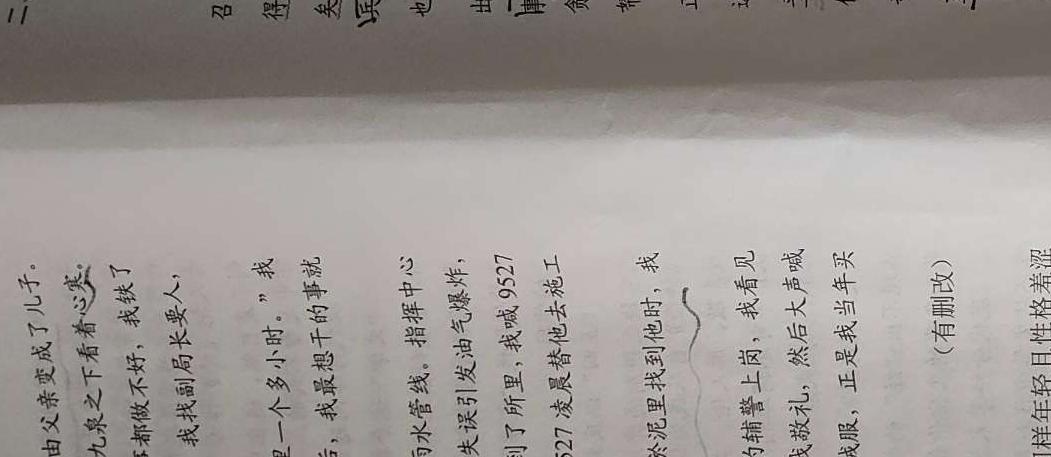 由父亲变成了儿子。
九泉之下看着心寒。
都做不好，我铁了
我找副局长要人，
里一个多小时。”我
后，我最想干的事就
水管线。指挥中心
失误引发油气爆炸，
到了所里，我喊9527
527凌晨替他去施工
淤泥里找到他时，我
的辅警上岗，我看见
我敬礼，然后大声喊
成服，正是我当年买
（有删改）
样年轻且性格羞涩
召
得
矣
也
出
事
贪